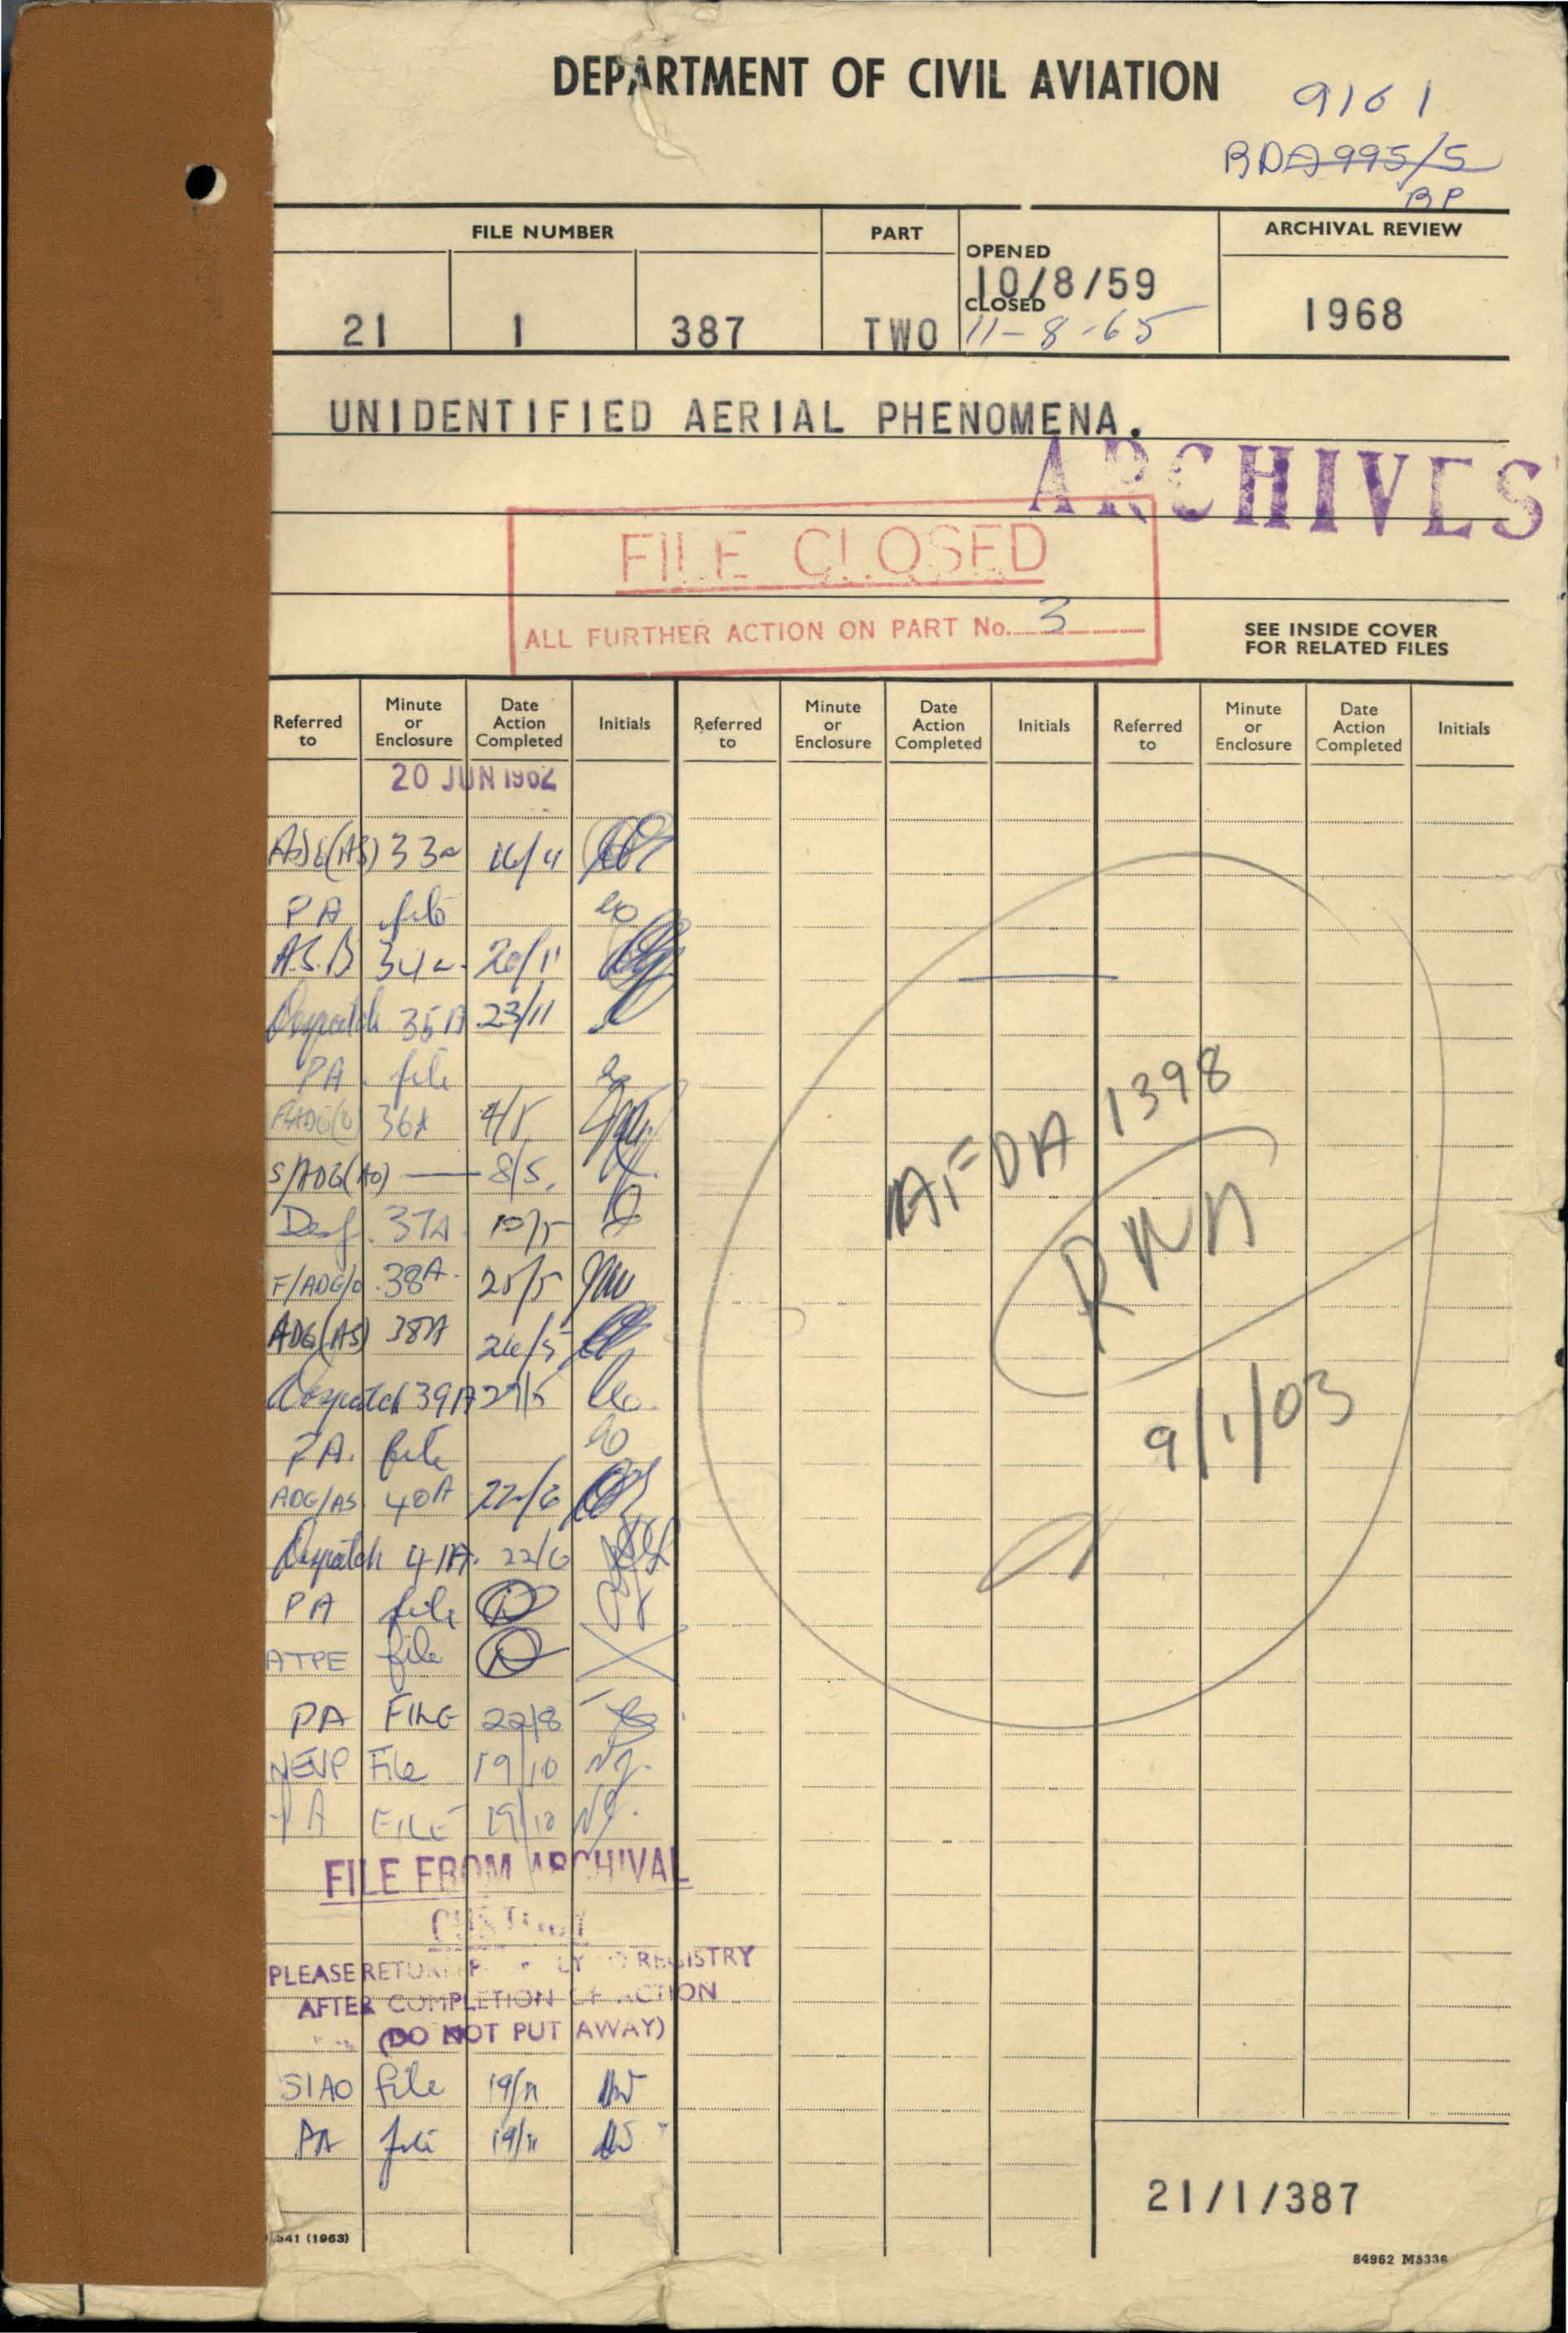 DEPARTMENT OF CIVIL AVIATION
9161
BDA995/5
BP
FILE NUMBER PART OPENED ARCHIVAL REVIEW
10/8/59
CLOSED
21 1 387 TWO 11-8-65 1968
UNIDENTIFIED AERIAL PHENOMENA.
ARCHIVES
FILE CLOSED
ALL FURTHER ACTION ON PART No. 3
SEE INSIDE COVER
FOR RELATED FILES
Referred to Minute or Enclosure Date Action Completed Initials Referred to Minute or Enclosure Date Action Completed Initials Referred to Minute or Enclosure Date Action Completed Initials
20 JUN 1962
33a
PA file
34a 20/11
Despatch 35A 23/11
PA file
36A 4/5
S/ADG(AO) 8/5
37A 10/5
F/ADG/O 38A 25/5
ADG(AS) 38A 26/5
Despatch 39A 27/5
PA. file
ADG/AS 40A 22/6
Despatch 41A 22/6
PA file
ATPE file
PA FILE 22/8
File 19/10
FILE 19/10
1398
9/1/03
FILE FROM ARCHIVAL
CUSTODY
PLEASE RETURN REGISTRY
AFTER COMPLETION OF ACTION
(DO NOT PUT AWAY)
SIAO file 19/11
PA file 19/11
21/1/387
541 (1963)
84962 M5336